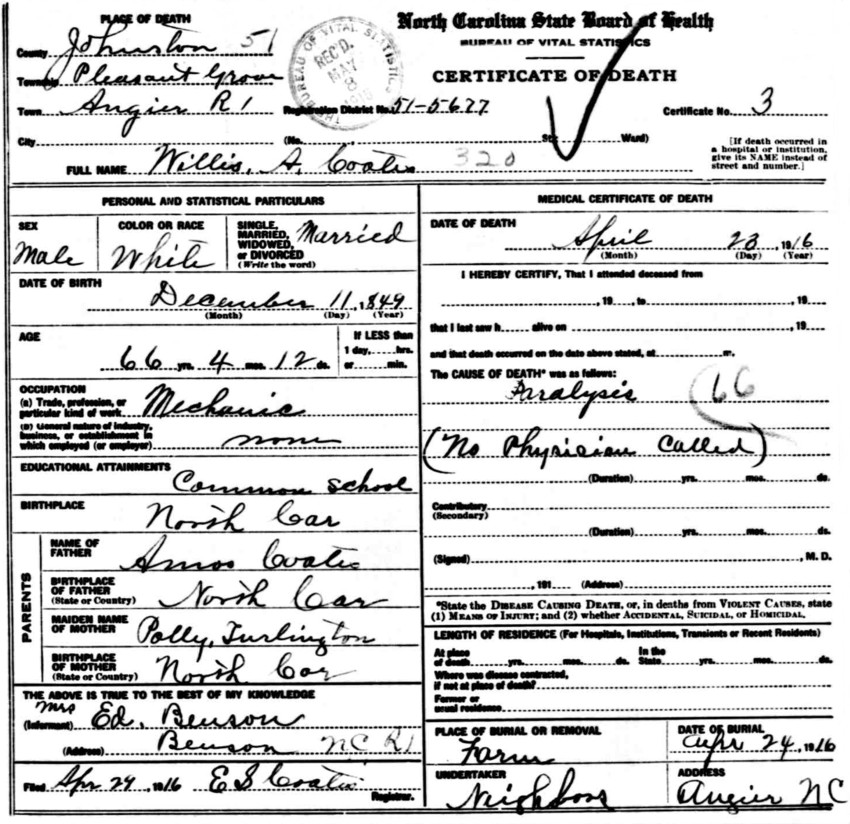 PLACE OF DEATH
County Johnston 51
Township Pleasant Grove
Town Angier R 1
City
North Carolina State Board of Health
BUREAU OF VITAL STATISTICS
CERTIFICATE OF DEATH
THE BUREAU OF VITAL STATISTICS
REC'D.
MAY
8
Registration District No. 51-5677
Certificate No. 3
(No. St; Ward)
[If death occurred in a hospital or institution, give its NAME instead of street and number.]
FULL NAME Willis, A. Coats 320
PERSONAL AND STATISTICAL PARTICULARS
SEX
Male
COLOR OR RACE
White
SINGLE, MARRIED, WIDOWED, or DIVORCED
(Write the word)
Married
DATE OF BIRTH
December 11, 1849
(Month) (Day) (Year)
AGE
66 yrs. 4 mos. 12 ds.
If LESS than
1 day, hrs.
or min.
OCCUPATION
(a) Trade, profession, or particular kind of work Mechanic
(b) General nature of industry, business, or establishment in which employed (or employer) none
EDUCATIONAL ATTAINMENTS
Common school
BIRTHPLACE
North Car
PARENTS
NAME OF FATHER
Amos Coats
BIRTHPLACE OF FATHER
(State or Country)
North Car
MAIDEN NAME OF MOTHER
Polly, Turlington
BIRTHPLACE OF MOTHER
(State or Country)
North Car
THE ABOVE IS TRUE TO THE BEST OF MY KNOWLEDGE
Mrs
(Informant) Ed. Benson
(Address) Benson NC R1
Filed Apr 29, 1916 E S Coats
Registrar.
MEDICAL CERTIFICATE OF DEATH
DATE OF DEATH
April 23, 1916
(Month) (Day) (Year)
I HEREBY CERTIFY, That I attended deceased from
, 19 , to , 19
that I last saw h alive on , 19
and that death occurred on the date above stated, at m.
The CAUSE OF DEATH* was as follows:
Paralysis 66
(No Physician Called)
(Duration) yrs. mos. ds.
Contributory
(Secondary)
(Duration) yrs. mos. ds.
(Signed) , M. D.
, 191 (Address)
*State the DISEASE CAUSING DEATH, or, in deaths from VIOLENT CAUSES, state
(1) MEANS OF INJURY; and (2) whether ACCIDENTAL, SUICIDAL, or HOMICIDAL.
LENGTH OF RESIDENCE (For Hospitals, Institutions, Transients or Recent Residents)
At place of death yrs. mos. ds. In the State yrs. mos. ds.
Where was disease contracted, if not at place of death?
Former or usual residence
PLACE OF BURIAL OR REMOVAL
Farm
DATE OF BURIAL
Apr 24, 1916
UNDERTAKER
Neighbors
ADDRESS
Angier NC